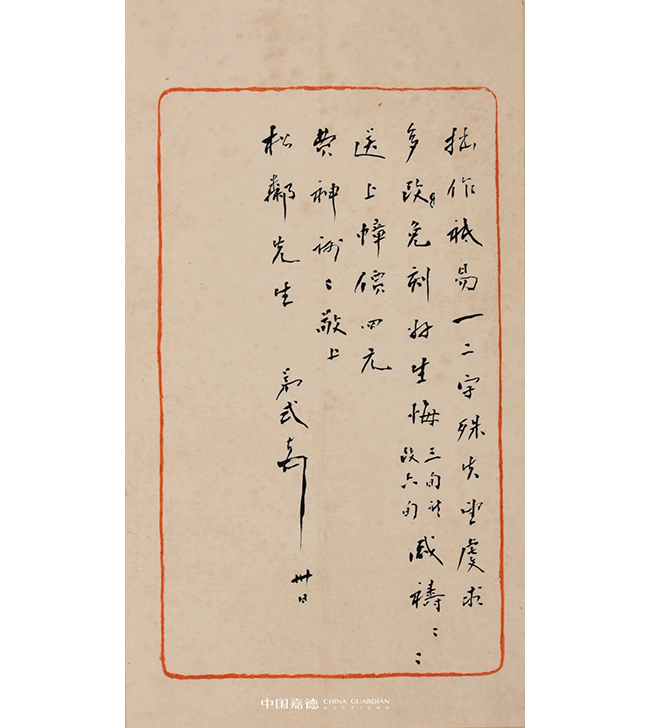 拙作祗易一二字殊失望虔求
多改免刻好生悔三句改六句感禱〻〻
送上幛價四元
費神謝〻敬上
松鄰先生 弟式 卅日
中国嘉德 CHINA GUARDIAN
AUCTIONS